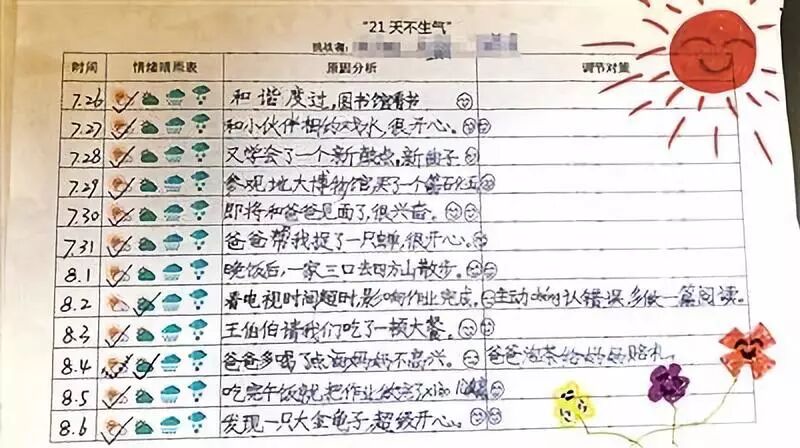 “21天不生气”
挑战者:
时间 情绪晴雨表 原因分析 调节对策
7.26 和谐度过,图书馆看书
7.27 和小伙伴相约戏水,很开心。
7.28 又学会了一个新鼓点,新曲子
7.29 参观地大博物馆,买了一个萤石化石
7.30 即将和爸爸见面了,很兴奋。
7.31 爸爸帮我捉了一只蝉,很开心。
8.1 晚饭后,一家三口去四方山散步。
8.2 看电视时间超时,影响作业完成。 主动 认错误,多做一篇阅读。
8.3 王伯伯请我们吃了一顿大餐。
8.4 爸爸多喝了点酒妈妈不高兴。 爸爸泡茶给妈妈赔礼。
8.5 吃完午饭就把作业做完了
8.6 发现一只大金龟子,超级开心。